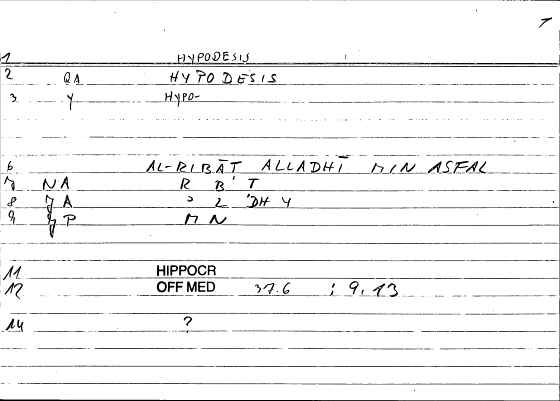 1 HYPODESIS
2 QA HYPODESIS
3 Y HYPO-
6 AL-RIBĀT ALLADHĪ MIN ASFAL
7 NA R B ' T
8 A ' L 'DH Y
9 P M N
11 HIPPOCR
12 OFF MED 37.6 : 9.13
14 ?